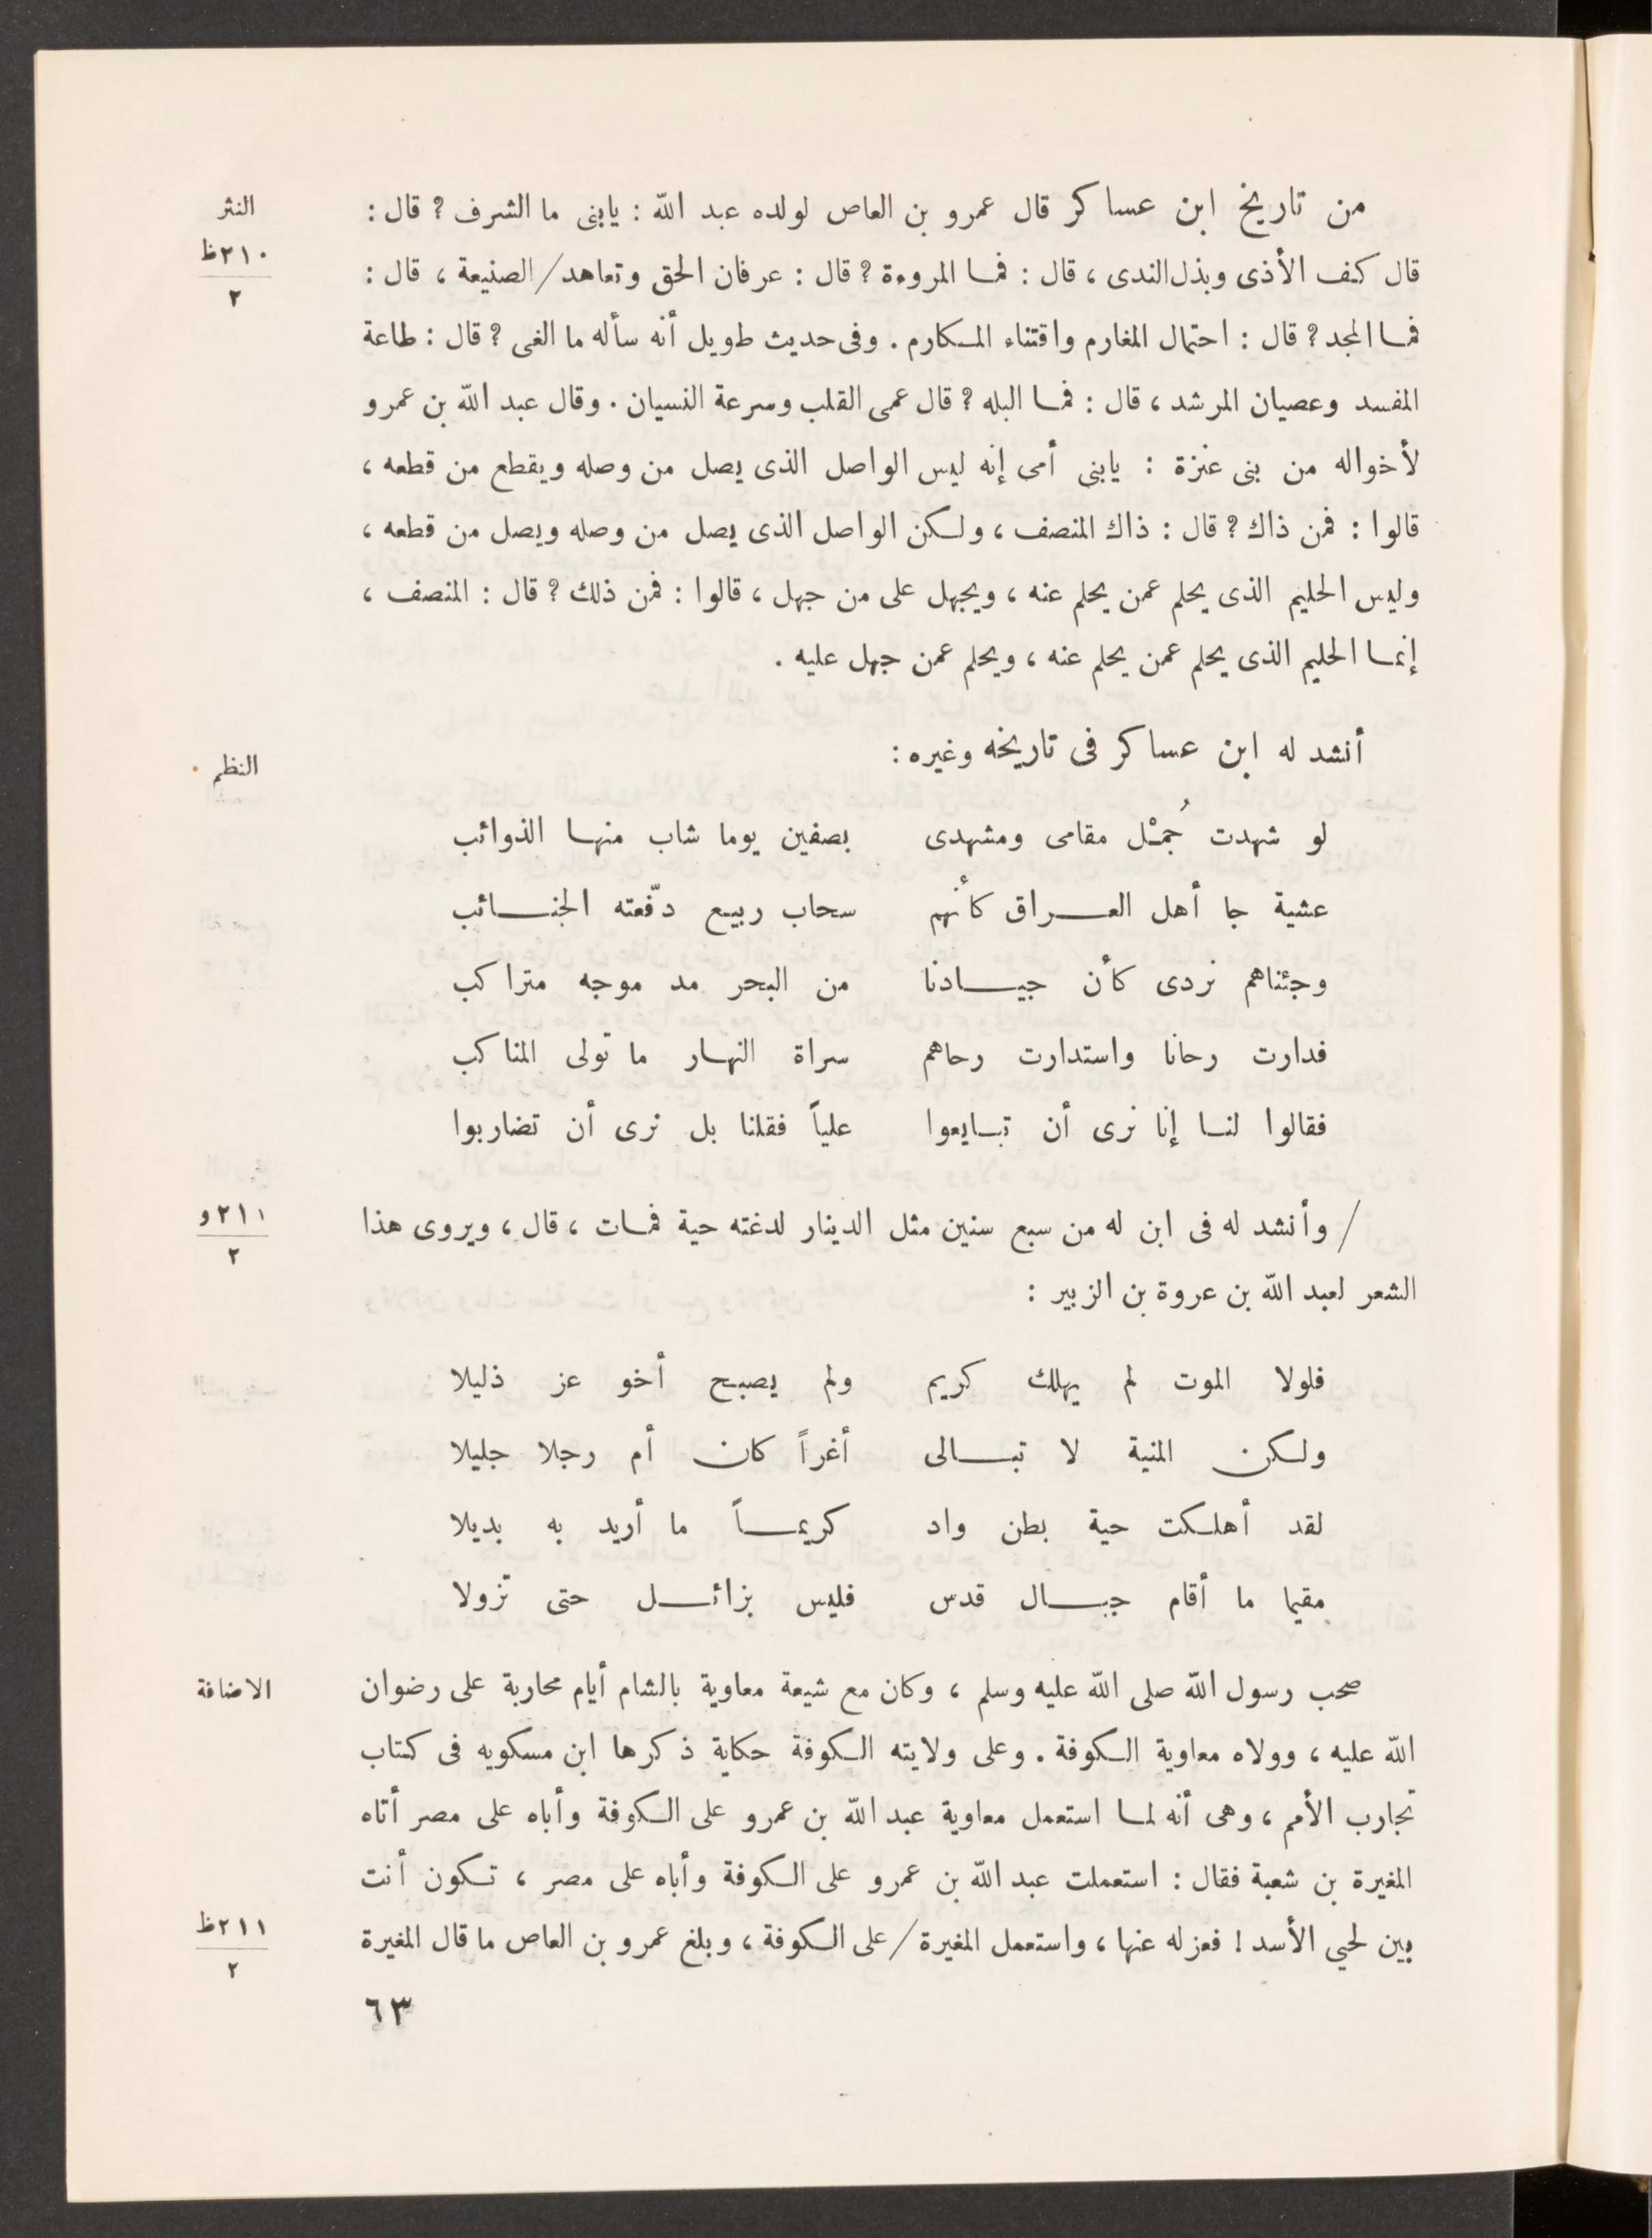 من تاريخ ابن عساكر قال عمرو بن العاص لولده عبد الله : يابنى ما الشرف ? قال :
النثر
قال كف الأذى وبذل الندى ، قال : فما المروءة ? قال : عرفان الحق وتعاهد / الصنيعة ، قال :
٢١٠ظ
٢
فما المجد ? قال : احتمال المغارم واقتناء المكارم . وفى حديث طويل أنه سأله ما الغى ? قال : طاعة
المفسد وعصيان المرشد ، قال : فما البله ? قال عمى القلب وسرعة النسيان . وقال عبد الله بن عمرو
لأخواله من بنى عنزة : يابنى أمى إنه ليس الواصل الذى يصل من وصله ويقطع من قطعه ،
قالوا : فمن ذاك ? قال : ذاك المنصف ، ولكن الواصل الذى يصل من وصله ويصل من قطعه ،
وليس الحليم الذى يحلم عمن يحلم عنه ، ويجهل على من جهل ، قالوا : فمن ذلك ? قال : المنصف ،
إنما الحليم الذى يحلم عمن يحلم عنه ، ويحلم عمن جهل عليه .
أنشد له ابن عساكر فى تاريخه وغيره :
النظم
لو شهدت جُمْل مقامى ومشهدى بصفين يوما شاب منها الذوائب
عشية جا أهل العراق كأنهم سحاب ربيع دفّعته الجنائب
وجئناهم نردى كأن جيادنا من البحر مد موجه متراكب
فدارت رحانا واستدارت رحاهم سراة النهار ما تولى المناكب
فقالوا لنا إنا نرى أن تبايعوا علياً فقلنا بل نرى أن تضاربوا
/ وأنشد له فى ابن له من سبع سنين مثل الدينار لدغته حية فمات ، قال ، ويروى هذا
٢١١و
٢
الشعر لعبد الله بن عروة بن الزبير :
فلولا الموت لم يهلك كريم ولم يصبح أخو عز ذليلا
ولكن المنية لا تبالى أغراً كان أم رجلا جليلا
لقد أهلكت حية بطن واد كريماً ما أريد به بديلا
مقيما ما أقام جبال قدس فليس بزائل حتى تزولا
صحب رسول الله صلى الله عليه وسلم ، وكان مع شيعة معاوية بالشام أيام محاربة على رضوان
الاضافة
الله عليه ، وولاه معاوية الكوفة . وعلى ولايته الكوفة حكاية ذكرها ابن مسكويه فى كتاب
تجارب الأمم ، وهى أنه لما استعمل معاوية عبد الله بن عمرو على الكوفة وأباه على مصر أتاه
المغيرة بن شعبة فقال : استعملت عبد الله بن عمرو على الكوفة وأباه على مصر ، تكون أنت
بين لحيي الأسد ! فعزله عنها ، واستعمل المغيرة / على الكوفة ، وبلغ عمرو بن العاص ما قال المغيرة
٢١١ظ
٢
٦٣